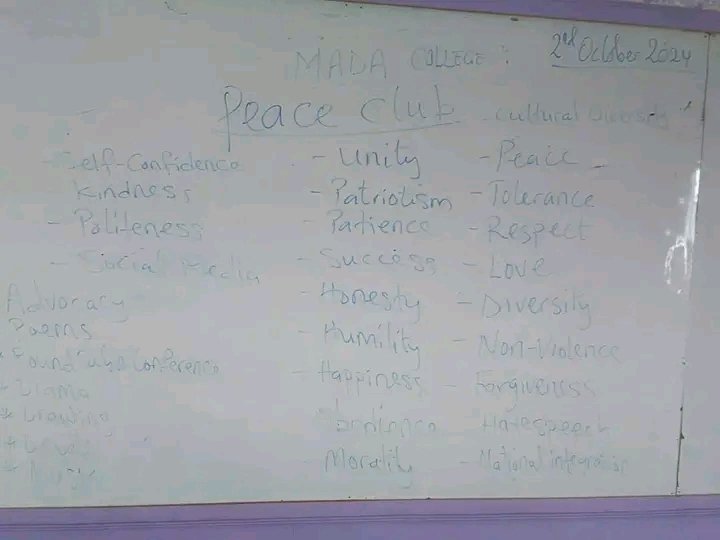 2nd October 2024
MADA COLLEGE:
Peace Club
Cultural Diversity
- Self-Confidence
Kindness
- Politeness
- Social Media
Advocacy
Poems
Conference
* Drama
* Drawing
- Unity
- Patriotism
- Patience
- Success
- Honesty
- Humility
- Happiness
Morality
- Peace
- Tolerance
- Respect
- Love
- Diversity
- Non-Violence
- Forgiveness
Hatespeech
- National integration